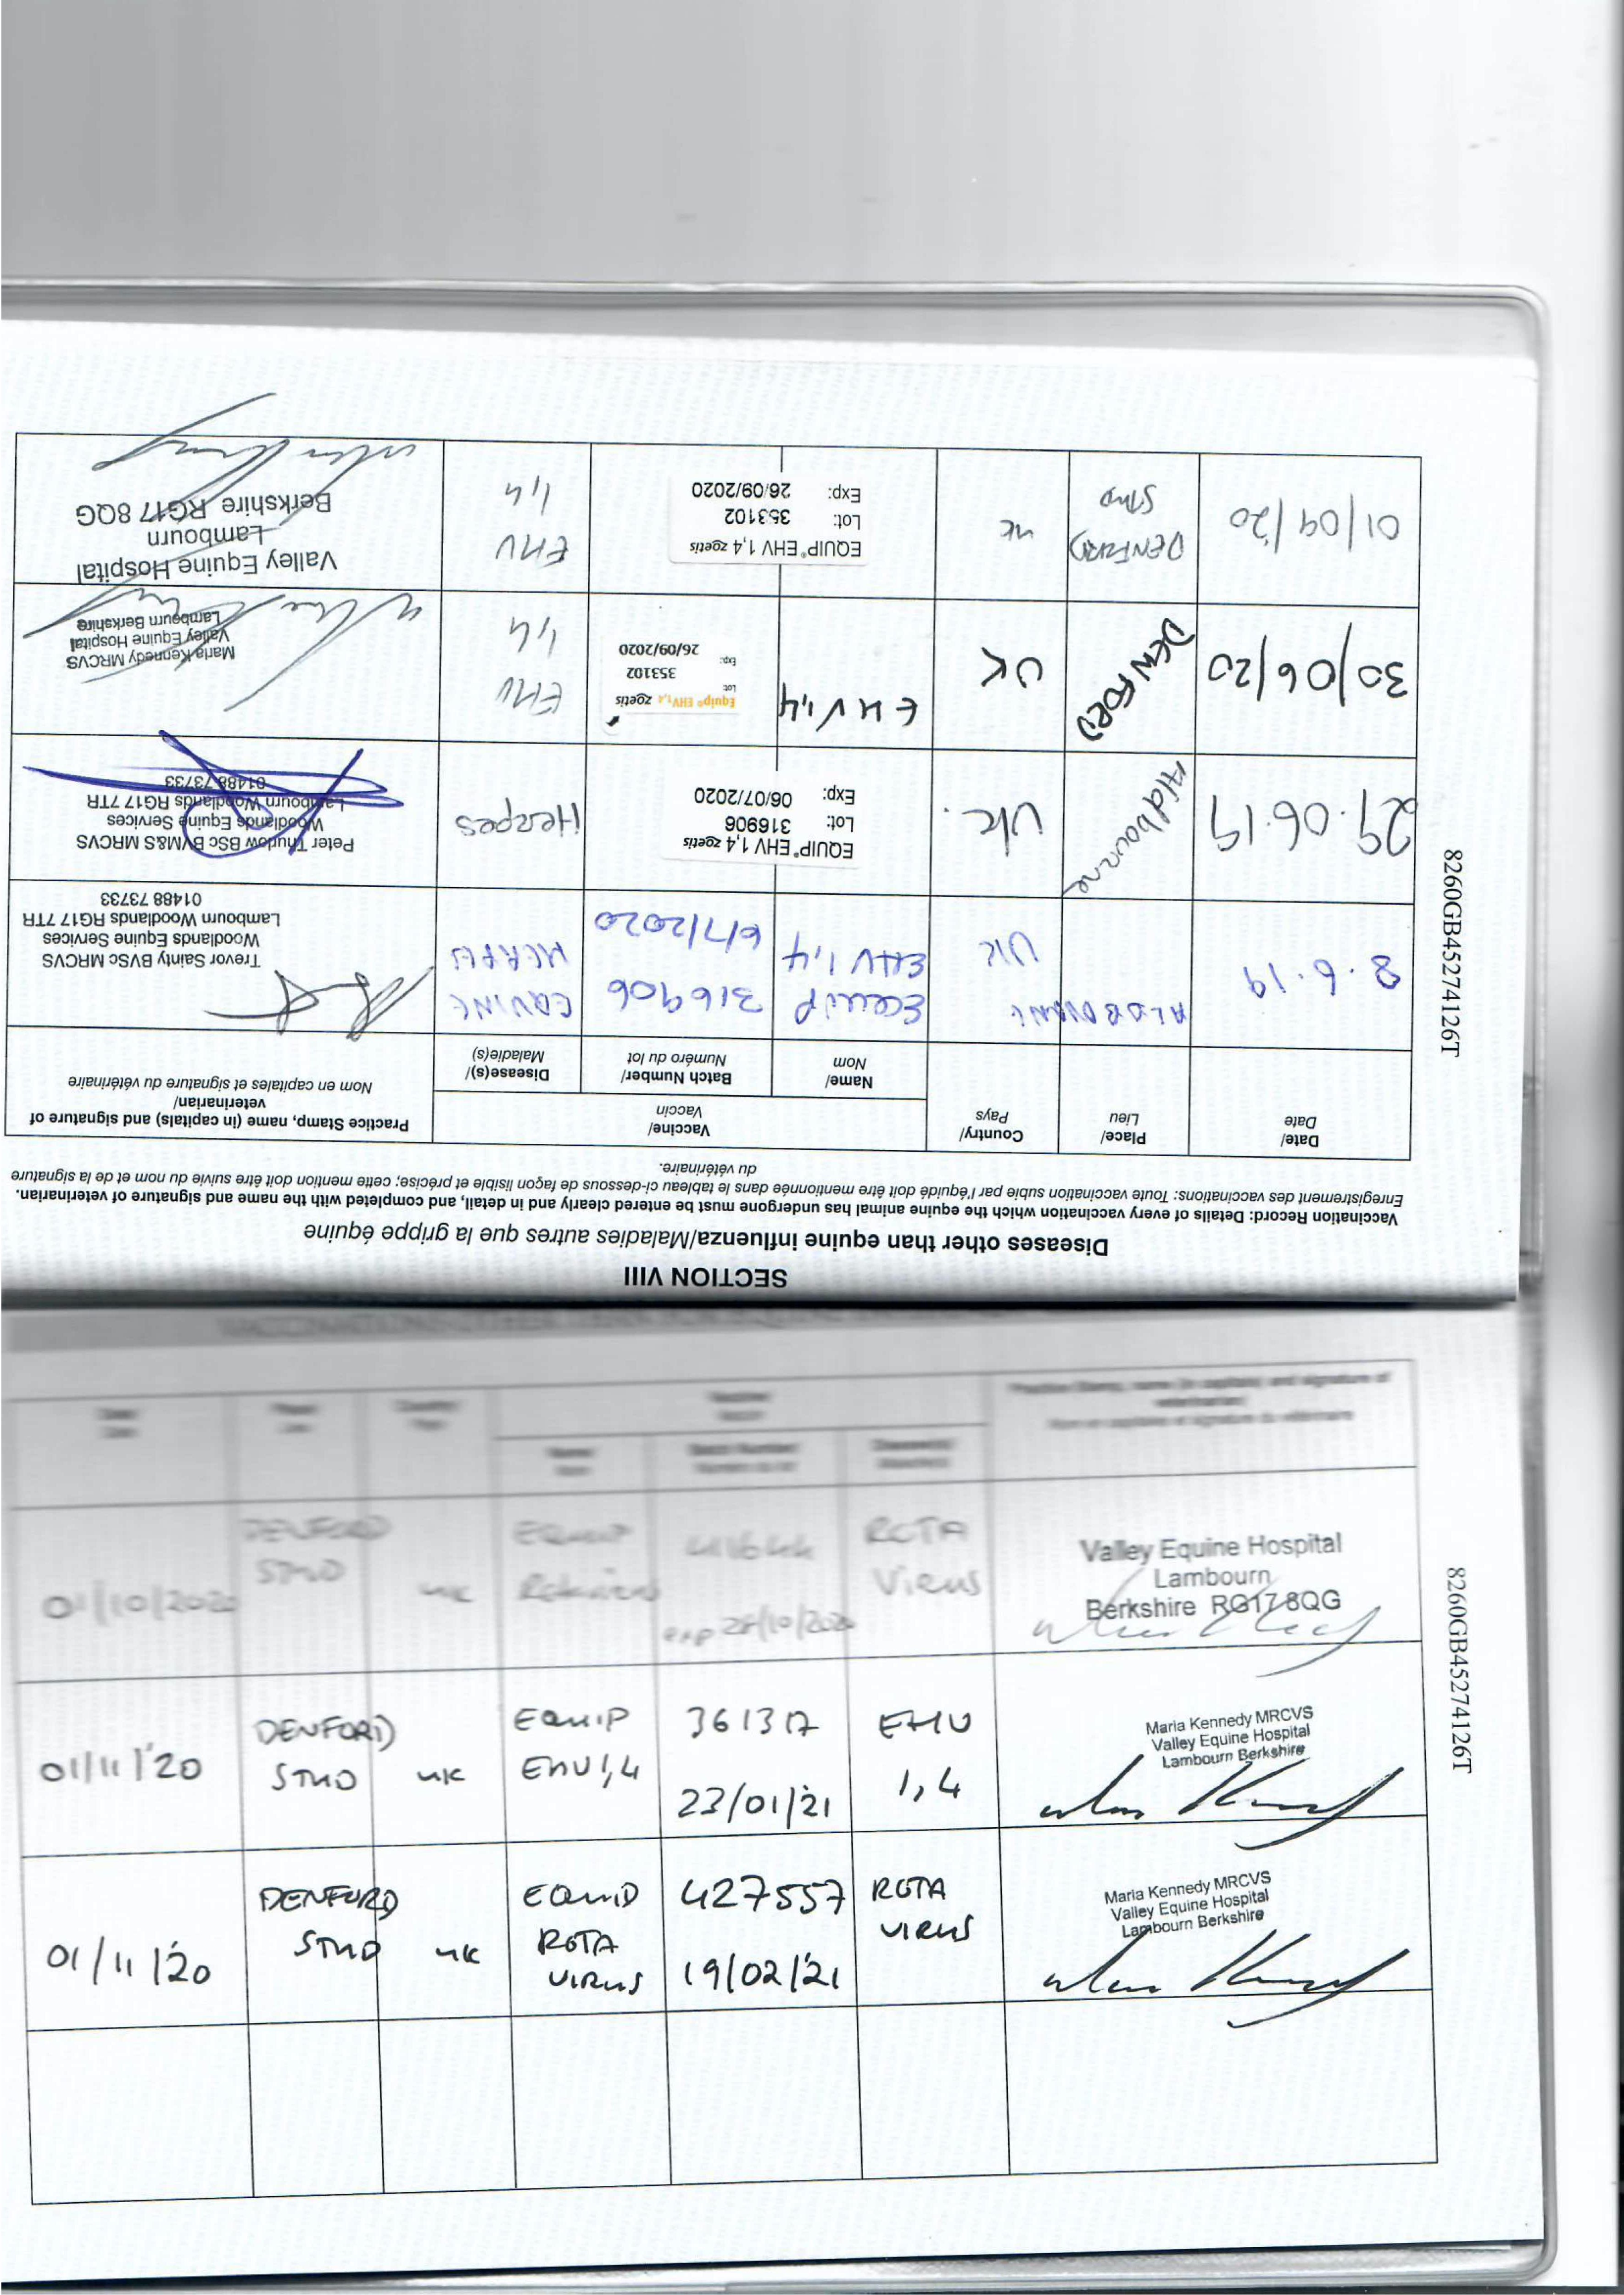 SECTION VIII
Diseases other than equine influenza/Maladies autres que la grippe équine
Vaccination Record: Details of every vaccination which the equine animal has undergone must be entered clearly and in detail, and completed with the name and signature of veterinarian.
Enregistrement des vaccinations: Toute vaccination subie par l'équidé doit être mentionnée dans le tableau ci-dessous de façon lisible et précise; cette mention doit être suivie du nom et de la signature
du vétérinaire.
Date/
Date
Place/
Lieu
Country/
Pays
Vaccine/
Vaccin
Name/
Nom
Batch Number/
Numéro du lot
Disease(s)/
Maladie(s)
Practice Stamp, name (in capitals) and signature of
veterinarian/
Nom en capitales et signature du vétérinaire
8.6.19
ALDBOURNE
UK
EQUIP
EHV 1,4
316906
6/7/2020
EQUINE
HERPES
Trevor Sainty BVSc MRCVS
Woodlands Equine Services
Lambourn Woodlands RG17 7TR
01488 73733
29.06.19
Aldbourne
UK.
EQUIP® EHV 1,4 zoetis
Lot: 316906
Exp: 06/07/2020
Herpes
Peter Thurlow BSC BVM&S MRCVS
Woodlands Equine Services
Lambourn Woodlands RG17 7TR
01488 73733
30/06/20
DENFORD
UK
EHV 1,4
Equip® EHV1,4 zoetis
Lot:
353102
Exp:
26/09/2020
EHV
1,4
Maria Kennedy MRCVS
Valley Equine Hospital
Lambourn Berkshire
01/09/'20
DENFORD
STUD
UK
EQUIP® EHV 1,4 zoetis
Lot: 353102
Exp: 26/09/2020
EHV
1,4
Valley Equine Hospital
Lambourn
Berkshire RG17 8QG
8260GB45274126T
01/10/2020
DENFORD
STUD
UK
EQUIP
exp
ROTA
VIRUS
Valley Equine Hospital
Lambourn
Berkshire RG17 8QG
01/11/'20
DENFORD
STUD
UK
EQUIP
EHV 1,4
361317
23/01/'21
EHV
1,4
Maria Kennedy MRCVS
Valley Equine Hospital
Lambourn Berkshire
01/11/'20
DENFORD
STUD
UK
EQUIP
ROTA
VIRUS
427557
19/02/'21
ROTA
VIRUS
Maria Kennedy MRCVS
Valley Equine Hospital
Lambourn Berkshire
8260GB45274126T